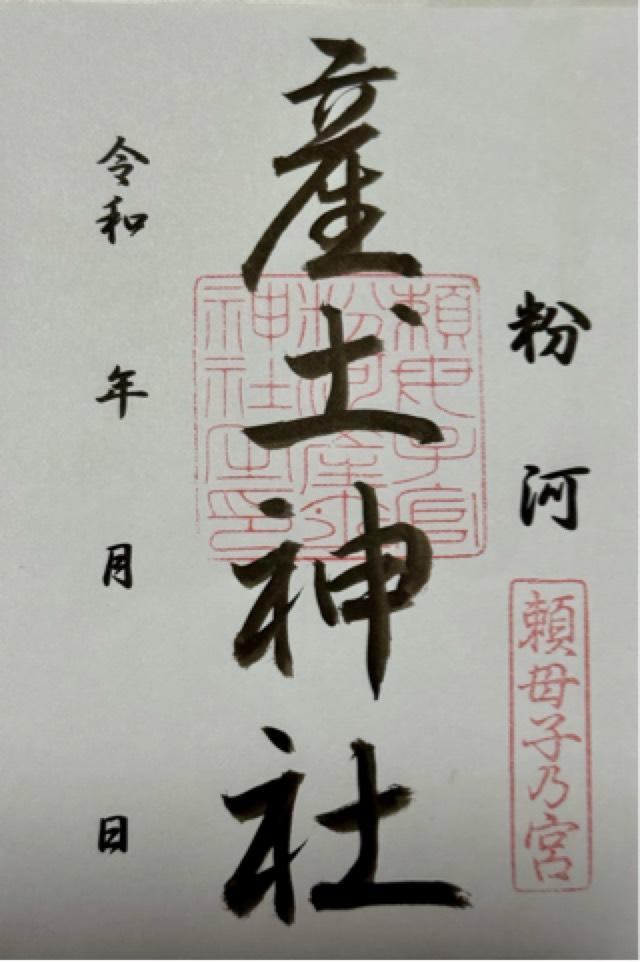 粉河
頼母子乃宮
産土神社
頼母子宮
粉河産土
神社之印
令和 年 月 日